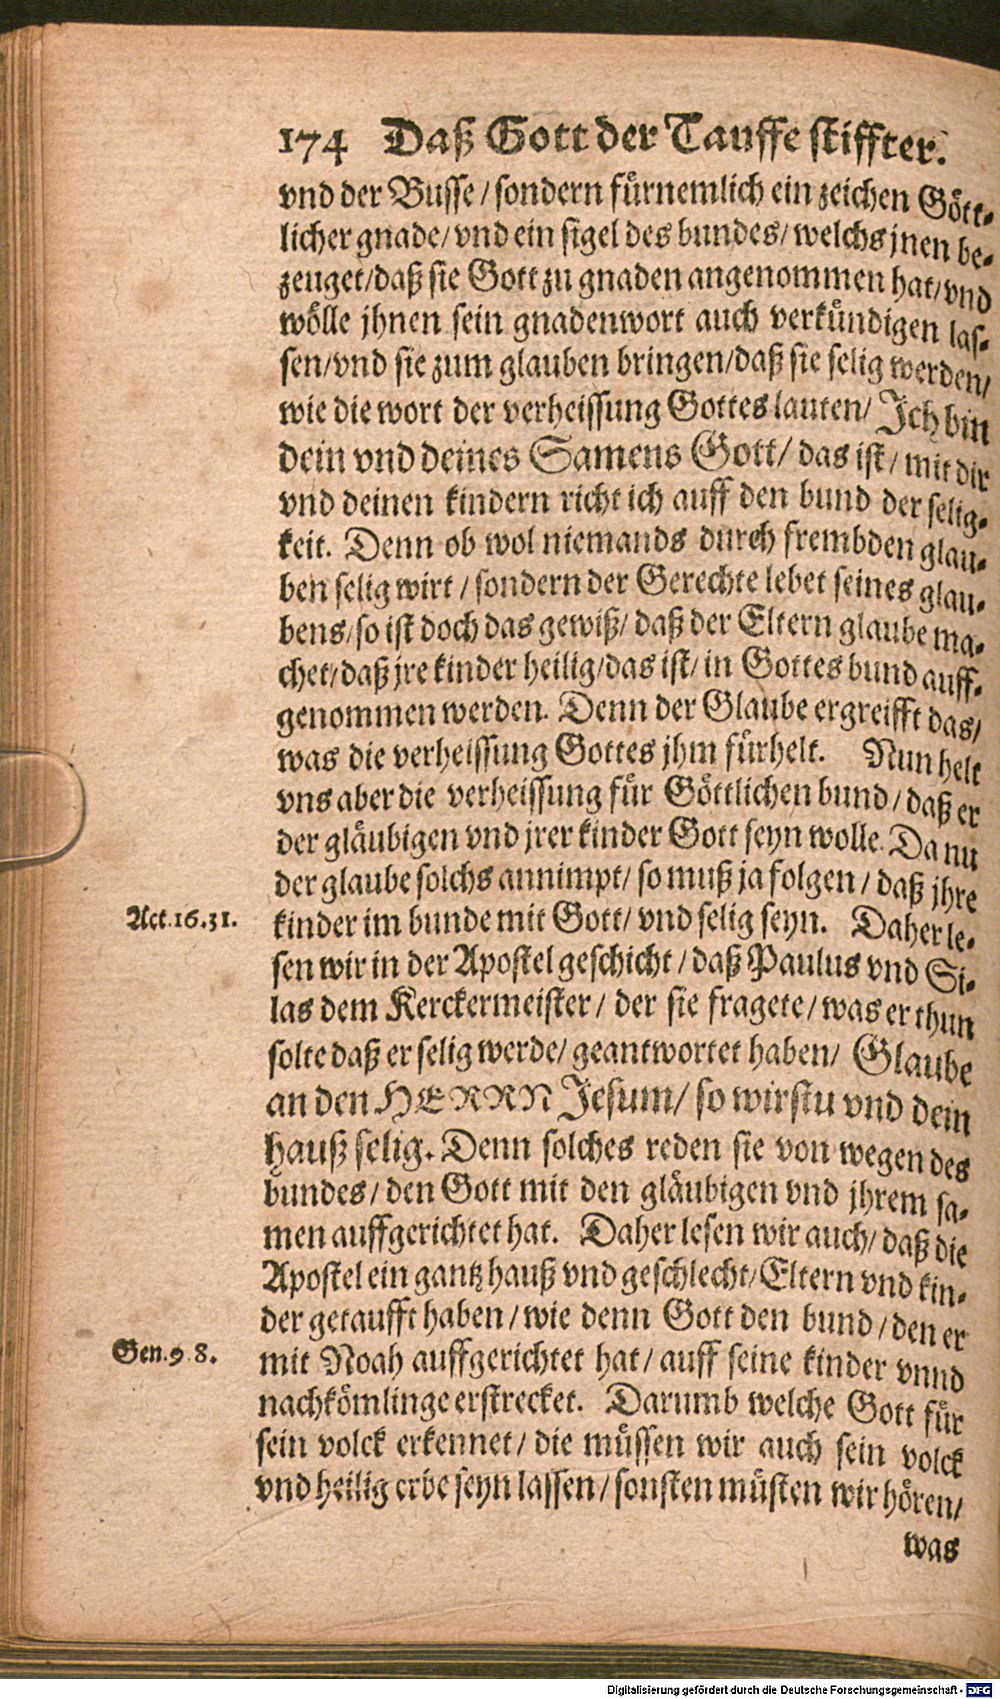 174 Daß Gott der Tauffe stiffter.
vnd der Busse / sondern fürnemlich ein zeichen Gött-
licher gnade/ vnd ein sigel des bundes/ welchs jnen be-
zeuget/daß sie Gott zu gnaden angenommen hat/vnd
wölle jhnen sein gnadenwort auch verkündigen las-
sen/vnd sie zum glauben bringen/daß sie selig werden/
wie die wort der verheissung Gottes lauten/ Ich bin
dein vnd deines Samens Gott/ das ist/ mit dir
vnd deinen kindern richt ich auff den bund der selig-
keit. Denn ob wol niemands durch frembden glau-
ben selig wirt / sondern der Gerechte lebet seines glau-
bens/so ist doch das gewiß/ daß der Eltern glaube ma-
chet/daß jre kinder heilig/das ist/ in Gottes bund auff-
genommen werden. Denn der Glaube ergreifft das/
was die verheissung Gottes jhm fürhelt. Nun helt
vns aber die verheissung für Göttlichen bund / daß er
der gläubigen vnd jrer kinder Gott seyn wolle. Da nu
der glaube solchs annimpt/ so muß ja folgen / daß jhre
Act.16.31. kinder im bunde mit Gott/ vnd selig seyn. Daher le-
sen wir in der Apostel geschicht / daß Paulus vnd Si-
las dem Kerckermeister / der sie fragete/ was er thun
solte daß er selig werde/ geantwortet haben/ Glaube
an den HERRN Jesum/ so wirstu vnd dein
hauß selig. Denn solches reden sie von wegen des
bundes / den Gott mit den gläubigen vnd jhrem sa-
men auffgerichtet hat. Daher lesen wir auch/ daß die
Apostel ein gantz hauß vnd geschlecht/Eltern vnd kin-
der getaufft haben / wie denn Gott den bund / den er
Gen.9 8. mit Noah auffgerichtet hat / auff seine kinder vnnd
nachkömlinge erstrecket. Darumb welche Gott für
sein volck erkennet / die müssen wir auch sein volck
vnd heilig erbe seyn lassen / sonsten müsten wir hören/
was
Digitalisierung gefördert durch die Deutsche Forschungsgemeinschaft - DFG